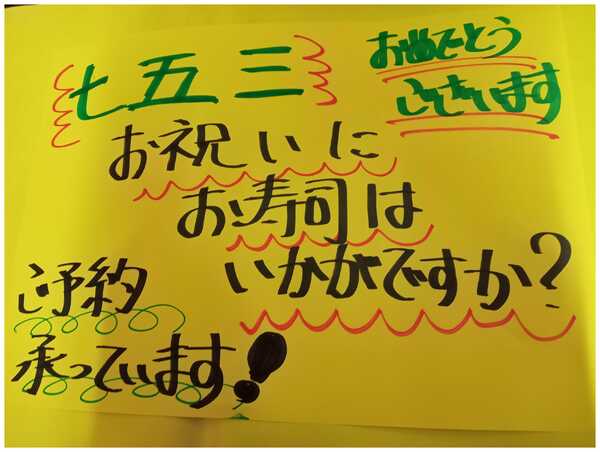 七五三
おめでとう
ございます
お祝いに
お寿司は
いかがですか?
ご予約
承っています!